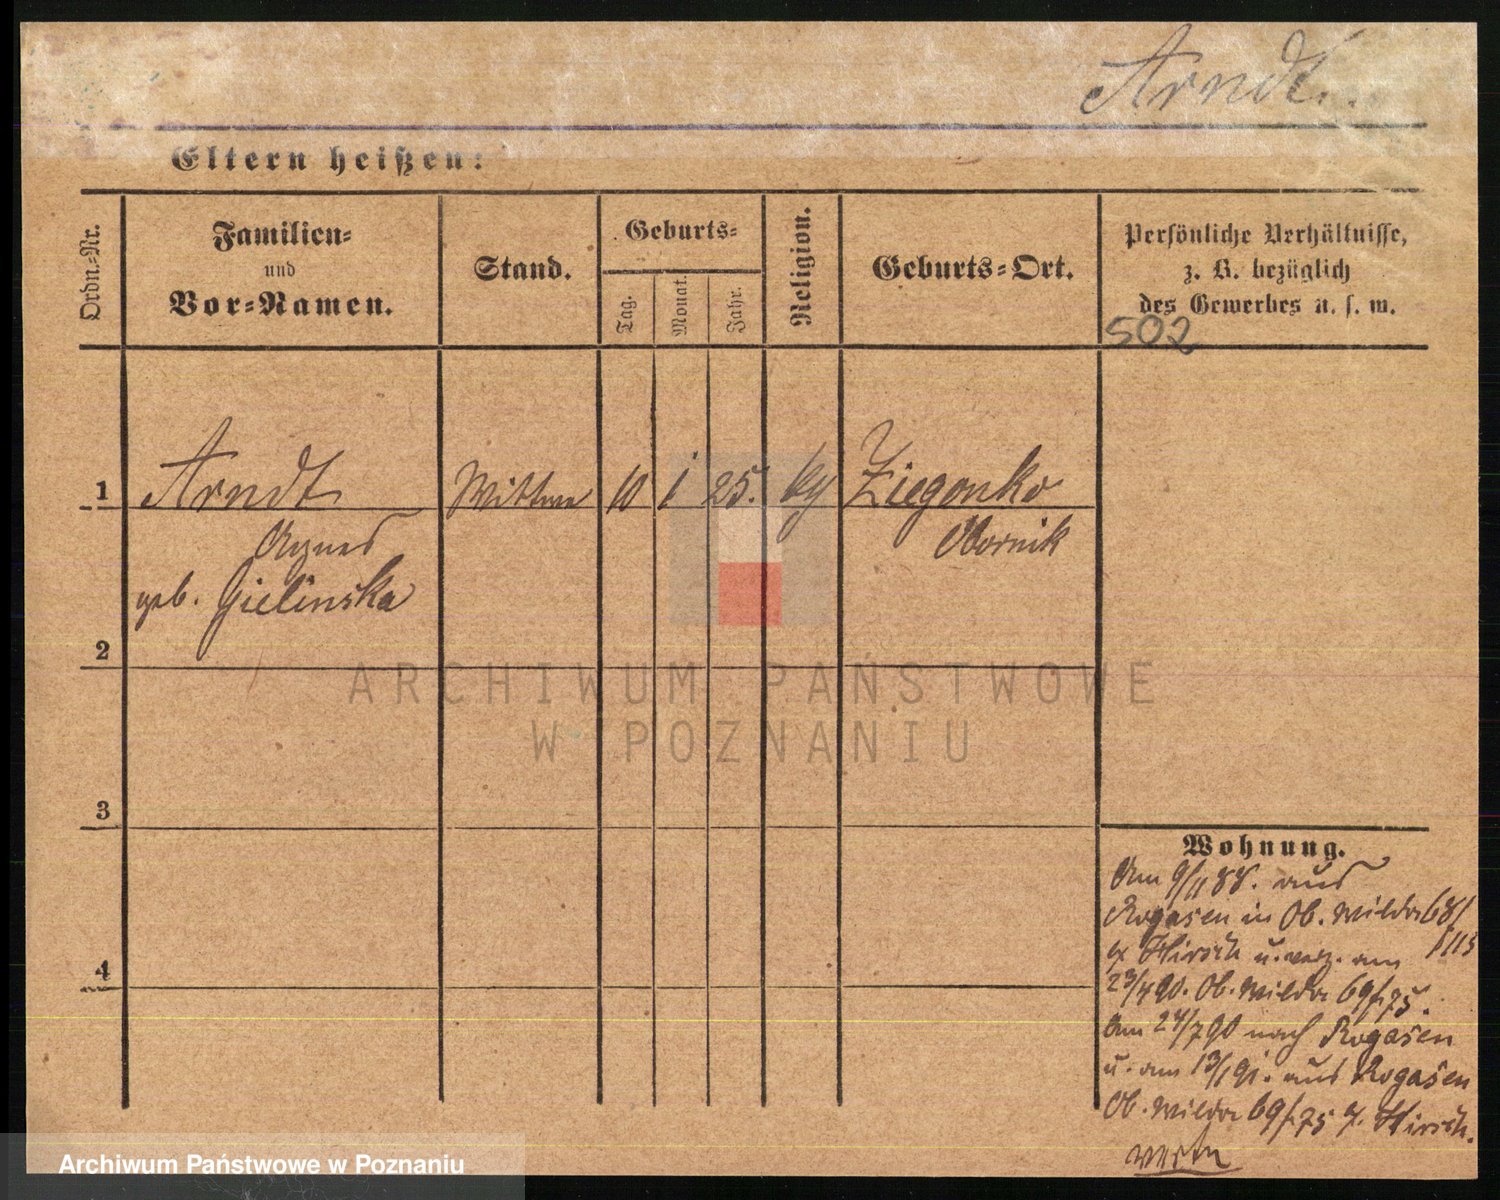 Arndt.
Eltern heißen:
Ordn.-Nr.
Familien-
und
Vor-Namen.
Stand.
Geburts-
Tag.
Monat.
Jahr.
Religion.
Geburts-Ort.
Persönliche Verhältnisse,
z. B. bezüglich
des Gewerbes u. s. w.
502
1
Arndt
Wittwe
10
1
25.
Ziegonko
Agnes
Obornik
geb. Gielinska
2
ARCHIWUM PAŃSTWOWE
W POZNANIU
3
Wohnung.
Am 9/11 88. aus
Rogasen in Ob. Wilda 68/
Hirsch u. verz. am
23/4 90. Ob. Wilda 69/75.
4
Am 24/7 90 nach Rogasen
u. am 13/1 91. aus Rogasen
Ob. Wilda 69/75 Hirsch.
Archiwum Państwowe w Poznaniu